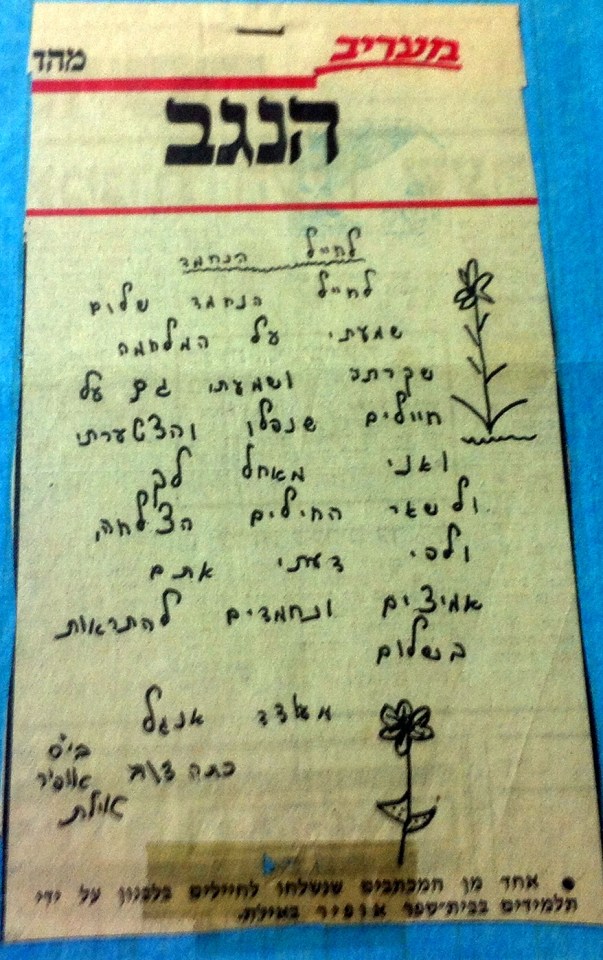 מעריב
מהד
הנגב
לחייל הנחמד
לחייל הנחמד שלום
שמעתי על המלחמה
שקרתה ושמעתי גם על
חיילים שנפלו והצטערתי
ואני מאחל לך
ולשאר החילים הצלחה,
ולפי דעתי אתם
אמיצים ונחמדים להתראות
בשלום
מאלדד אנגל
כתה
בי"ס
אופיר
אילת
• אחד מן המכתבים שנשלחו לחיילים בלבנון על ידי
תלמידים בבית־ספר אופיר באילת.